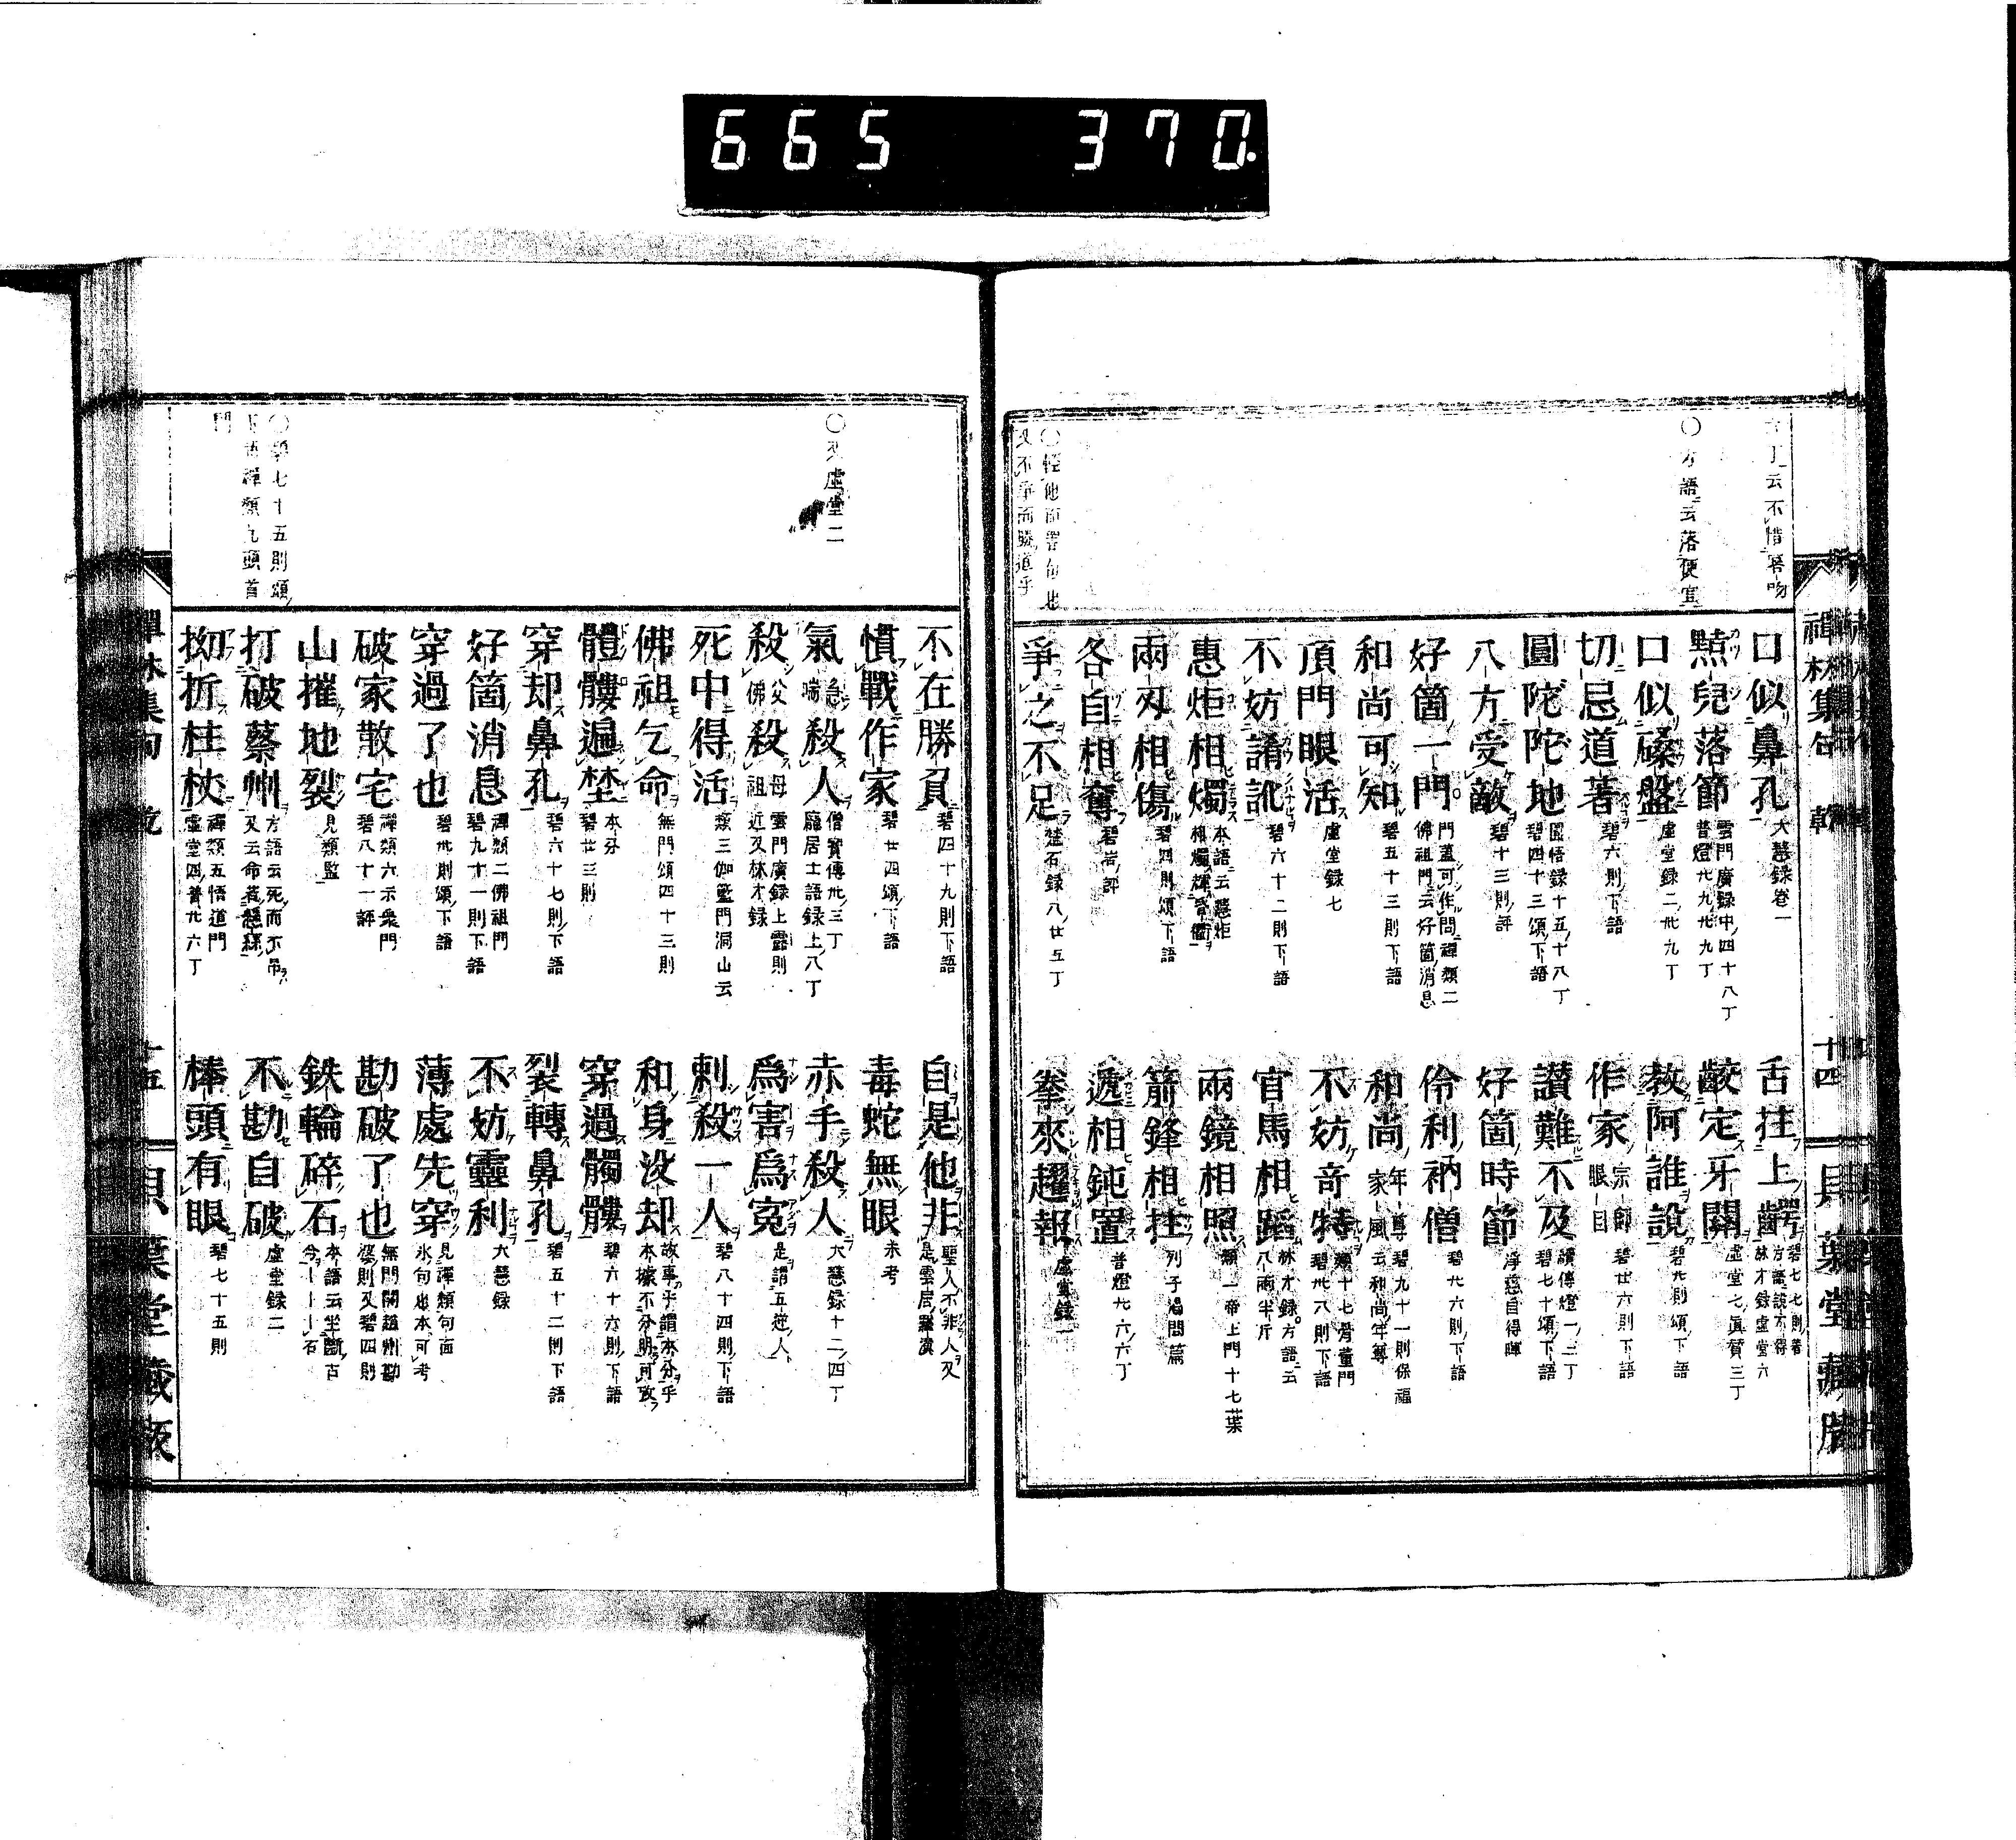 665 370
口似鼻孔 大慧録卷一
舌拄上齶 碧七七則著 方語説不得 林才録虚堂六
點兒落節 雲門廣録中四十八丁 普燈廿九廿九丁
齩定牙關 虚堂七眞賛三丁
口似磉盤 虚堂録二廿九丁
教阿誰説 碧九則頌下語
切忌道著 碧六則下語
作家 宗師 眼目 碧廿六則下語
圓陀陀地 圓悟録十五十八丁 碧四十三頌下語
讃難不及 續傳燈一三丁 碧七十頌下語
八方受敵 碧十三則評
好箇時節 淨慈自得暉
好箇一門 門蓋可作問禪類二 佛祖門云好箇消息
伶利衲僧 碧廿六則下語
和尚可知 碧五十三則下語
和尚 年尊 家風 碧九十一則保福 云和尚年尊
頂門眼活 虚堂録七
不妨奇特 類十七骨董門 碧卅八則下語
不妨誵訛 碧六十二則下語
官馬相蹈 林才録方語云 八兩半斤
惠炬相燭 本語云慧炬
兩鏡相照 類一帝上門十七葉
兩刄相傷 碧四則頌下語
箭鋒相拄 列子湯問篇
各自相奪 碧岩評
遞相鈍置 普燈廿六六丁
爭之不足 楚石録八廿五丁
拳來趯報 虚堂録一
〇方語云落便宜
禪林集句 乾 十四 貝葉堂藏版
不在勝負 碧四十九則下語
自是他非 聖人不非人又 是雲居羅漢
慣戰作家 碧廿四頌下語
毒蛇無眼 未考
氣 急 喘 殺人 僧寳傳卅三丁 龐居士語録上八丁
赤手殺人 大慧録十二四丁
殺 父 佛 殺 母 祖 雲門廣録上靈則 近又林才録
爲害爲寃 是謂五逆人
死中得活 類三伽藍門洞山云
刺殺一人 碧八十四則下語
佛祖乞命 無門頌四十三則
和身没却 故事乎謂本分乎 本據不分明可攷
髑髏遍埜 本分 碧廿三則
穿過髑髏 碧六十六則下語
穿却鼻孔 碧六十七則下語
裂轉鼻孔 碧五十二則下語
好箇消息 禪類二佛祖門 碧九十一則下語
不妨靈利 大慧録
穿過了也 碧卅則頌下語
薄處先穿 見禪類句面 氷句也本可考
破家散宅 禪類六示衆門 碧八十一評
勘破了也 無門關趙州勘 婆則又碧四則
山摧地裂 見類監
鉄輪碎石 本語云坐斷百
打破蔡州 方語云死而不弔 又云命若懸絲
不勘自破 虚堂録二
拗折柱杖 禪類五悟道門 虚堂四普廿六丁
棒頭有眼 碧七十五則
〇又虚堂二
〇碧七十五則頌
下語禪類九頭首
門
禪林集句 乾 十五 貝葉堂藏版